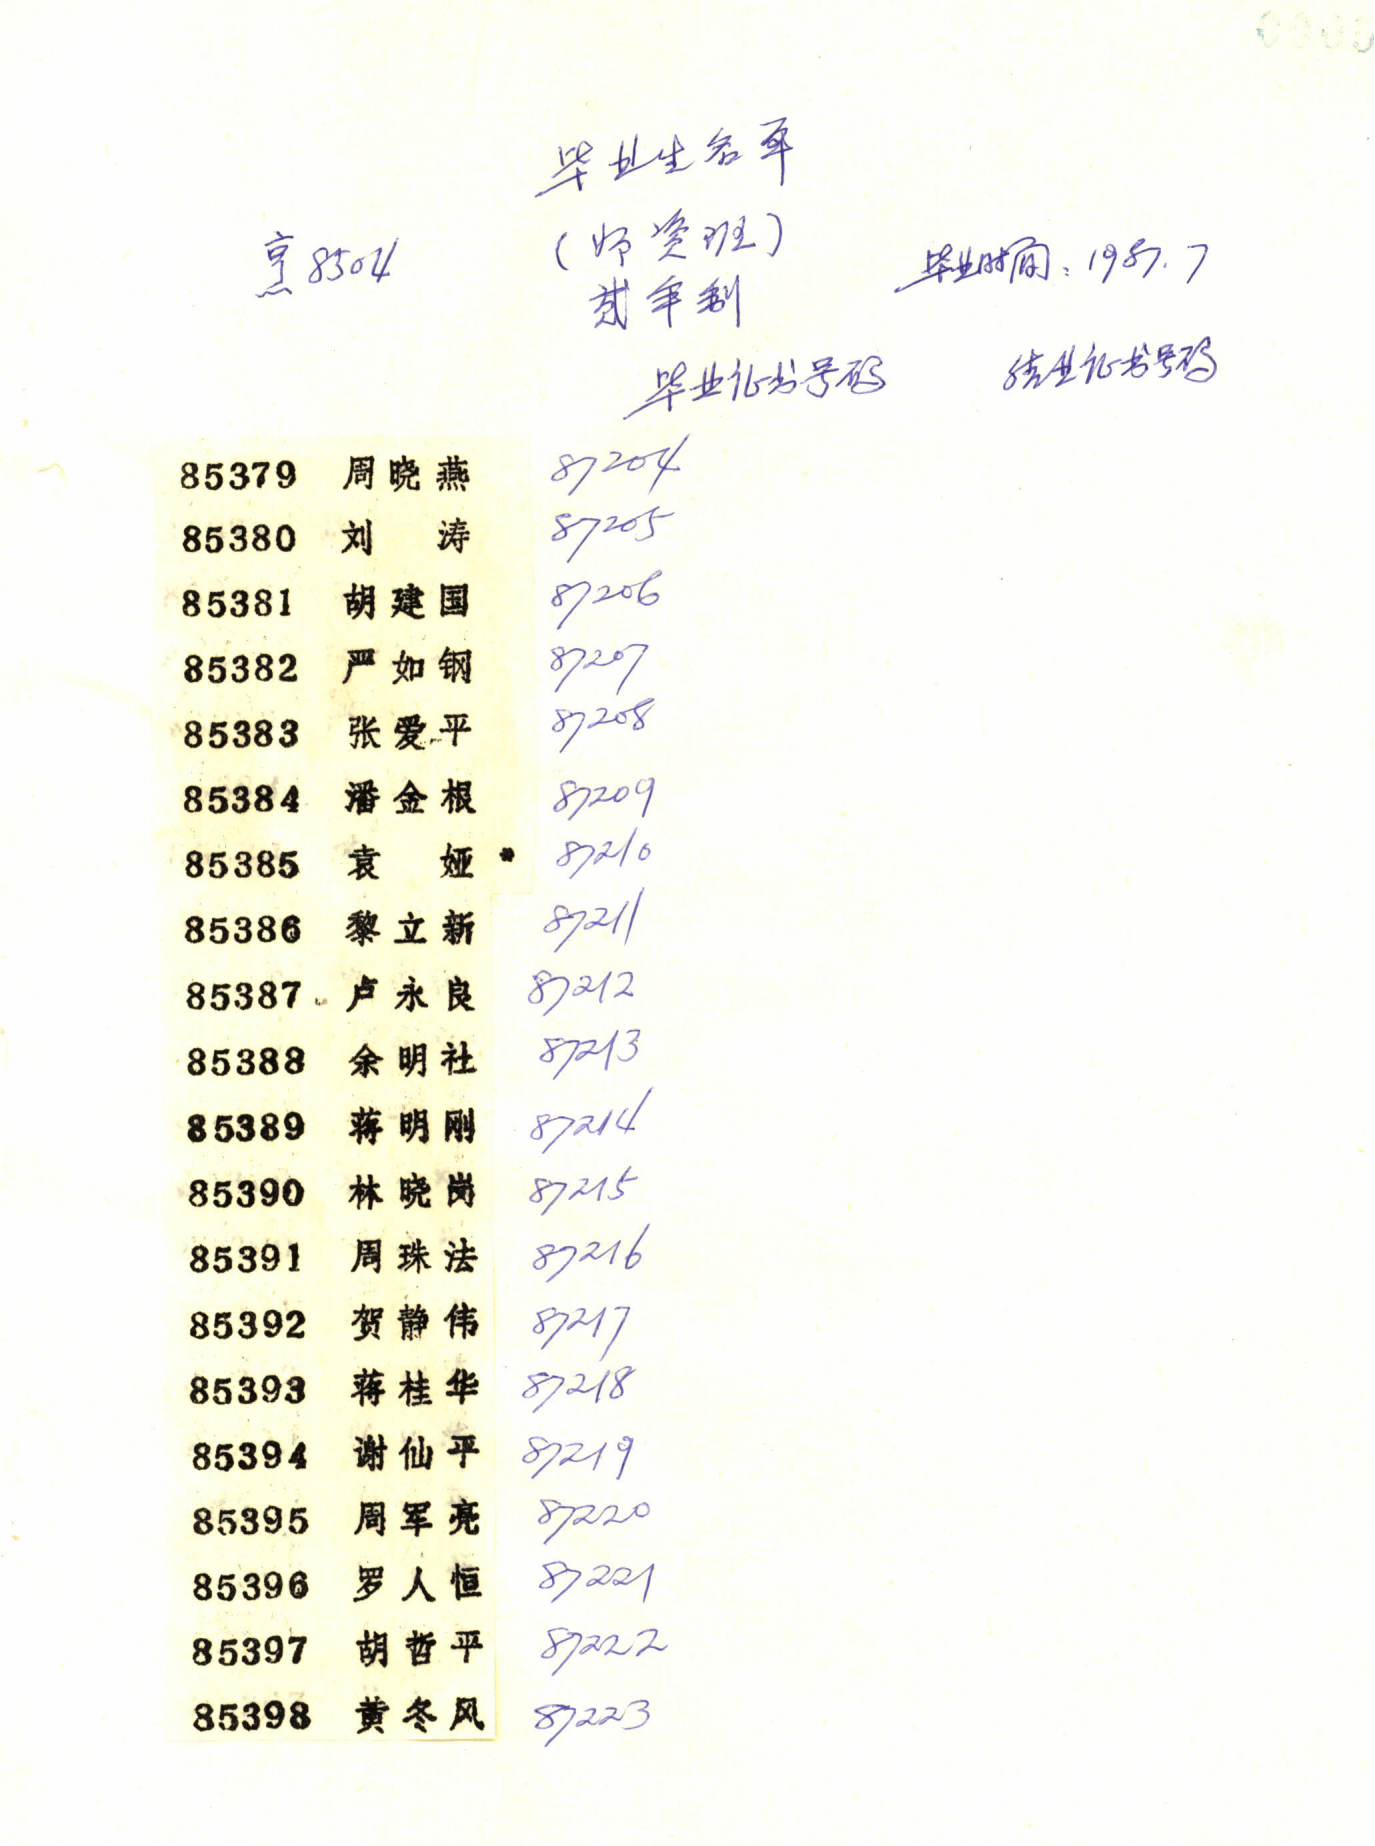 毕业生名单
(师资班)
烹8504
毕业时间:1987.7
贰年制
毕业证书号码 结业证书号码
85379 周晓燕 87204
85380 刘涛 87205
85381 胡建国 87206
85382 严如钢 87207
85383 张爱平 87208
85384 潘金根 87209
85385 袁娅* 87210
85386 黎立新 87211
85387 卢永良 87212
85388 余明社 87213
85389 蒋明刚 87214
85390 林晓岗 87215
85391 周珠法 87216
85392 贺静伟 87217
85393 蒋桂华 87218
85394 谢仙平 87219
85395 周军亮 87220
85396 罗人恒 87221
85397 胡哲平 87222
85398 黄冬风 87223